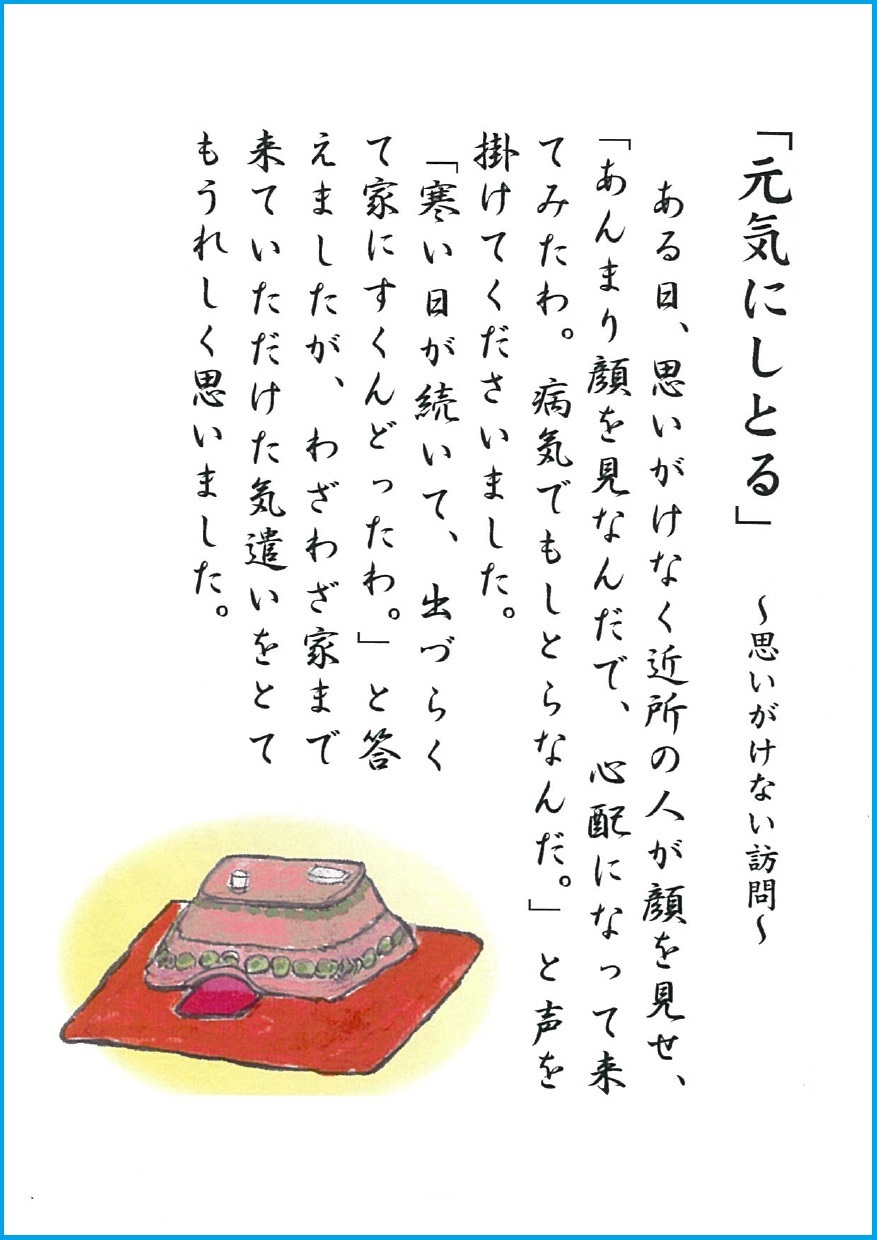 「元気にしとる」 ～思いがけない訪問～
ある日、思いがけなく近所の人が顔を見せ、
「あんまり顔を見なんだで、心配になって来
てみたわ。病気でもしとらなんだ。」と声を
掛けてくださいました。
「寒い日が続いて、出づらく
て家にすくんどったわ。」と答
えましたが、わざわざ家まで
来ていただけた気遣いをとて
もうれしく思いました。